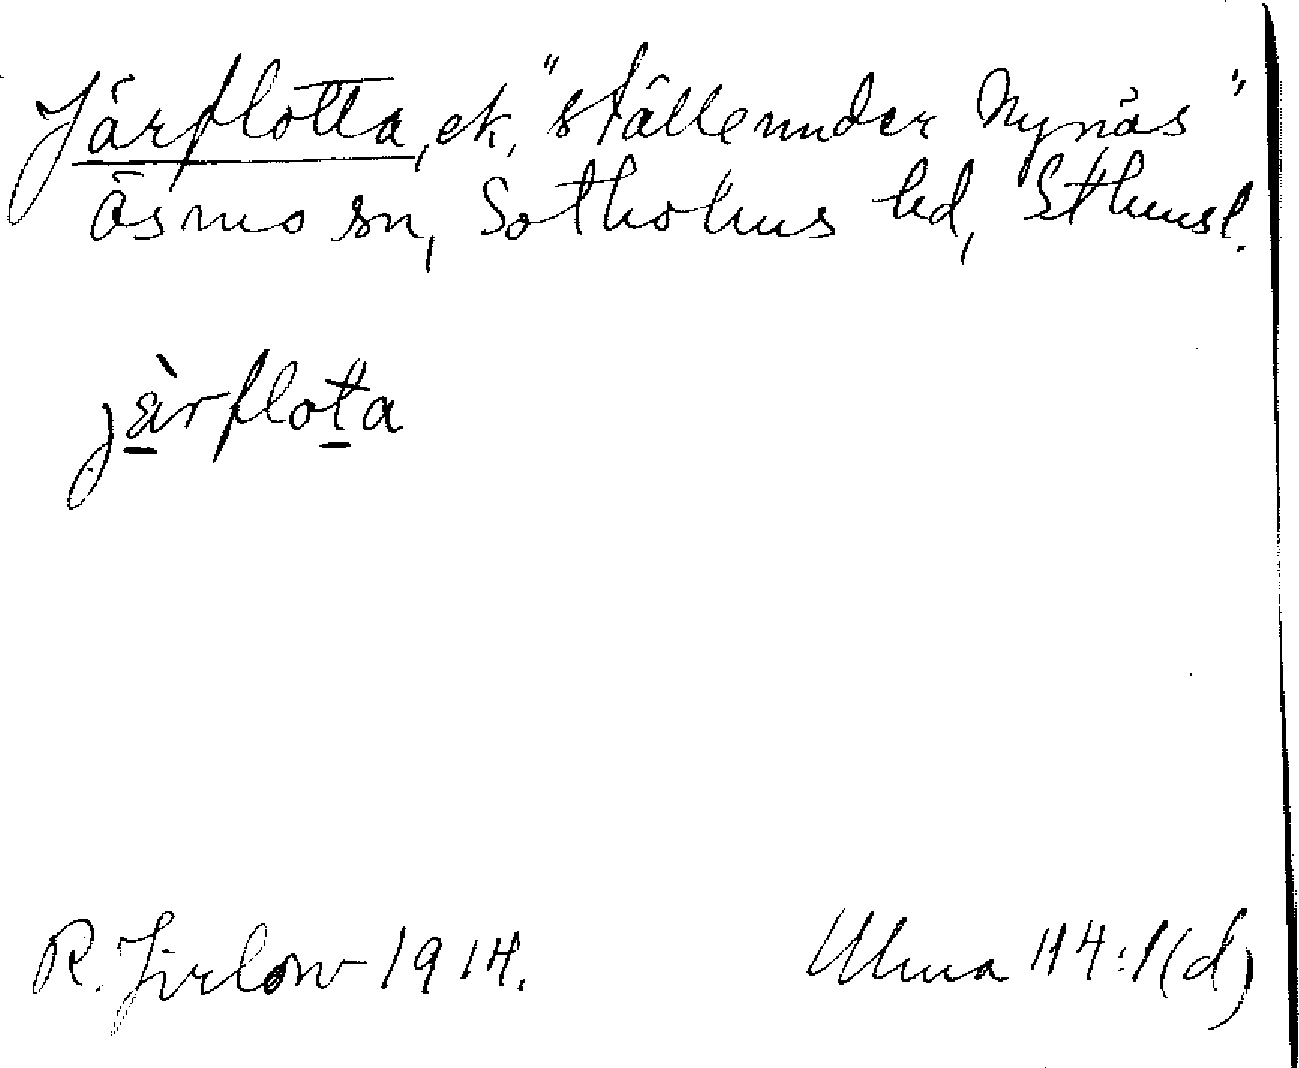 Järflotta, ek, "ställe under Nynäs"
Ösmo sn, Sotholms hd, Sthmsl.
jàrflota
R. Jirlow 1914.
Ulma 114:1(d)